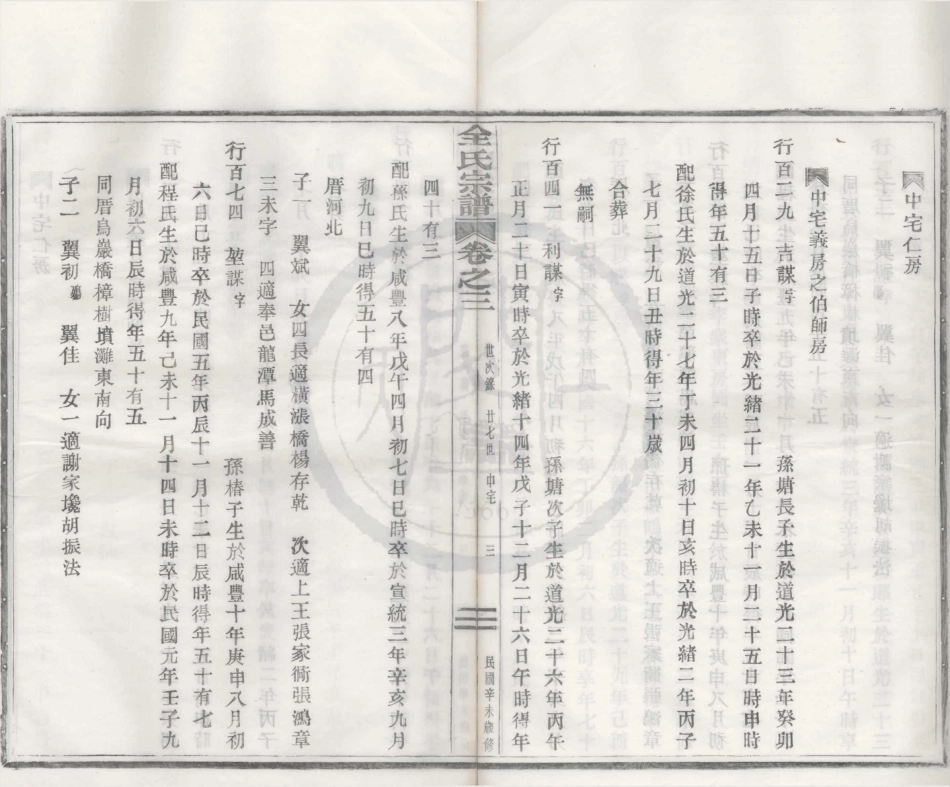 中宅仁房
中宅義房之伯師房
行百三九 吉謀字 孫塘長子生於道光二十三年癸卯
四月十五日子時卒於光緒二十一年乙未十一月二十五日時申時
得年五十有三
配徐氏生於道光二十七年丁未四月初十日亥時卒於光緒二年丙子
七月二十九日丑時得年三十歲
合葬
無嗣
行百四一 利謀字 孫塘次子生於道光二十六年丙午
正月二十日寅時卒於光緒十四年戊子十二月二十六日午時得年
四十有三
全氏宗譜 卷之三 世次錄 廿七世 中宅 三 民國辛未歲修
配孫氏生於咸豐八年戊午四月初七日巳時卒於宣統三年辛亥九月
初九日巳時得五十有四
厝河北
子一 翼斌 女四長適橫漲橋楊存乾 次適上王張家衕張鴻章
三未字 四適奉邑龍潭馬成善
行百七四 堃謀字 孫椿子生於咸豐十年庚申八月初
六日巳時卒於民國五年丙辰十一月十二日辰時得年五十有七
配程氏生於咸豐九年己未十一月十四日未時卒於民國元年壬子九
月初六日辰時得年五十有五
同厝烏巖橋樟樹墳灘東南向
子二 翼初 翼佳 女一適謝家墻胡振法